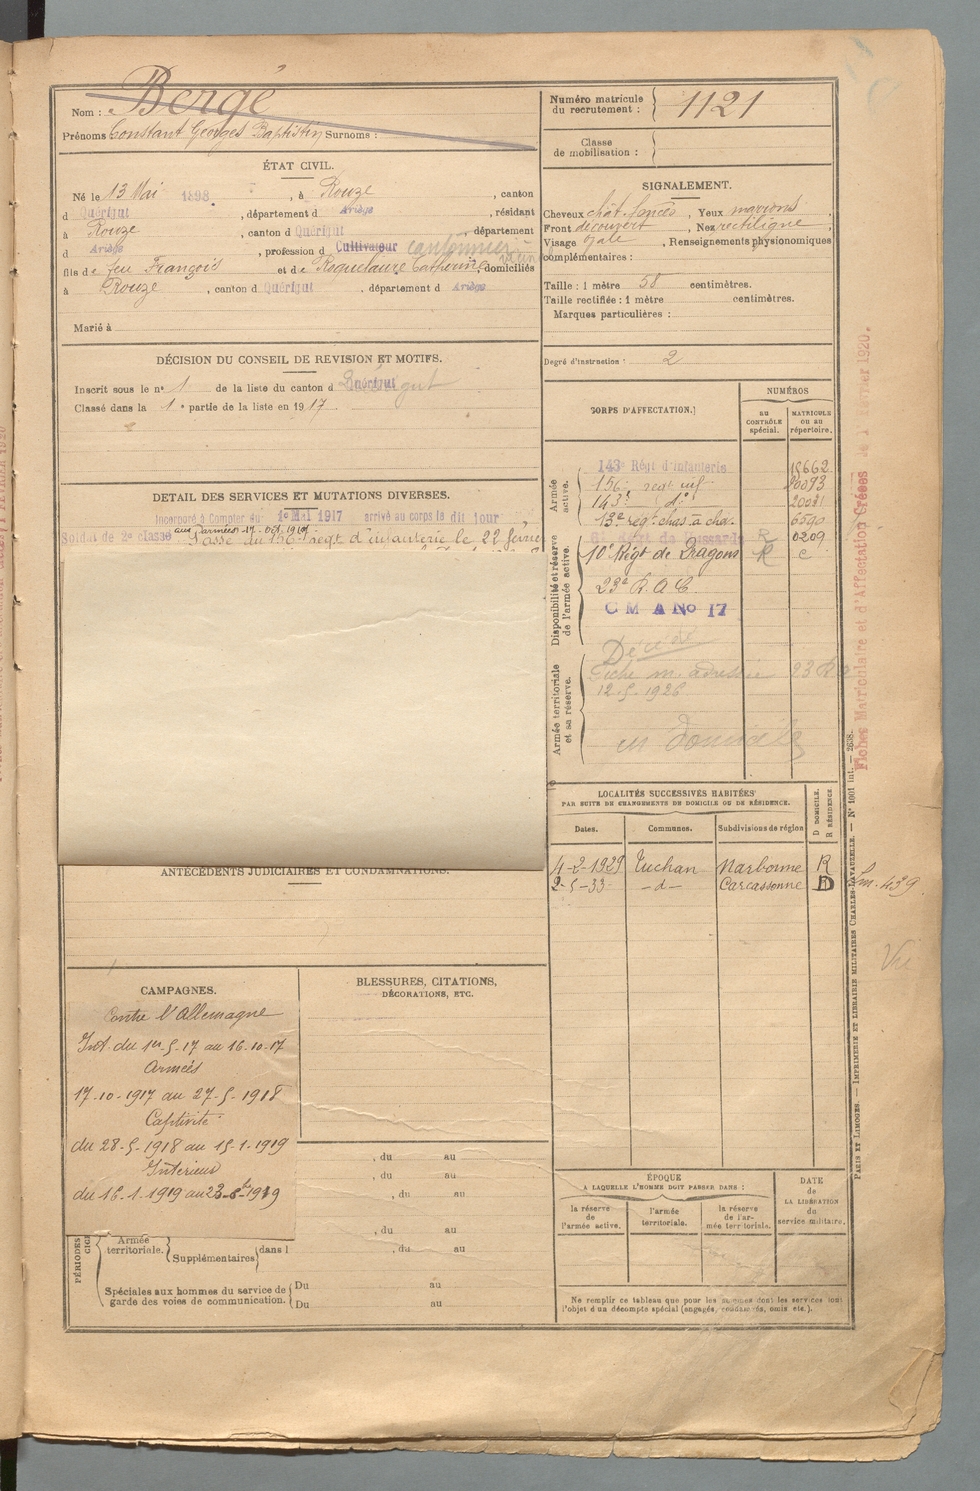 Nom : Bergé
Prénoms Constant Georges Baptistin Surnoms :
ÉTAT CIVIL.
Né le 13 Mai 1898, à Rouze, canton
d Quérigut, département d Ariège, résidant
à Rouze, canton d Quérigut, département
d Ariège, profession d Cultivateur cantonnier
fils de feu François et de Roquelaure Catherine, domiciliés
à Rouze, canton d Quérigut, département d Ariège
Marié à
DÉCISION DU CONSEIL DE REVISION ET MOTIFS.
Inscrit sous le nº 1 de la liste du canton d Quérigut
Classé dans la 1e partie de la liste en 1917.
DETAIL DES SERVICES ET MUTATIONS DIVERSES.
Incorporé à Compter du 1er Mai 1917 arrivé au corps le dit jour
aux armées 17-Oct. 1917
Soldat de 2e classe Passé au 156e régt d'infanterie le 22 février
ANTÉCÉDENTS JUDICIAIRES ET CONDAMNATIONS.
CAMPAGNES.
Contre l'Allemagne
Int. du 1er.5.17 au 16.10.17
Armées
17.10.1917 au 27.5.1918
Captivité
du 28.5.1918 au 15.1.1919
Intérieur
du 16.1.1919 au 23
BLESSURES, CITATIONS,
DÉCORATIONS, ETC.
, du au
, du au
, du au
, du au
PÉRIODES
Armée
territoriale. Supplémentaires dans l , du au
Spéciales aux hommes du service de
garde des voies de communication.
Du au
Du au
Numéro matricule
du recrutement : 1121
Classe
de mobilisation :
SIGNALEMENT.
Cheveux chât. foncés, Yeux marrons,
Front découvert, Nez rectiligne,
Visage ovale, Renseignements physionomiques
complémentaires :
Taille : 1 mètre 58 centimètres.
Taille rectifiée : 1 mètre centimètres.
Marques particulières :
Degré d'instruction : 2
CORPS D'AFFECTATION.
NUMÉROS
au
CONTRÔLE
spécial.
MATRICULE
ou au
répertoire.
Armée
active.
143e Régt d'infanterie 15662
156e regt inf.
143e dº
13e regt chas. à chev.
Disponibilité et réserve
de l'armée active.
0209
10e Régt de Dragons R
23e R.A.C.
C M A No 17
Armée territoriale
et sa réserve.
Décédé
Fiche m. adressée 23
12.5.1926
LOCALITÉS SUCCESSIVES HABITÉES
PAR SUITE DE CHANGEMENTS DE DOMICILE OU DE RÉSIDENCE.
Dates. Communes. Subdivisions de région
D DOMICILE.
R RÉSIDENCE.
4-2-1929 Tuchan Narbonne R
2-5-33 -d- Carcassonne D
ÉPOQUE
A LAQUELLE L'HOMME DOIT PASSER DANS :
la réserve
de
l'armée active.
l'armée
territoriale.
la réserve
de l'ar-
mée territoriale.
DATE
de
LA LIBÉRATION
du
service militaire.
Ne remplir ce tableau que pour les hommes dont les services font
l'objet d'un décompte spécial (engagés, condamnés, omis etc.).
Fiches Matriculaire et d'Affectation Créées le 1er Février 1920.
PARIS ET LIMOGES. — IMPRIMERIE ET LIBRAIRIE MILITAIRES CHARLES-LAVAUZELLE. — Nº 1001 int. — 2638.